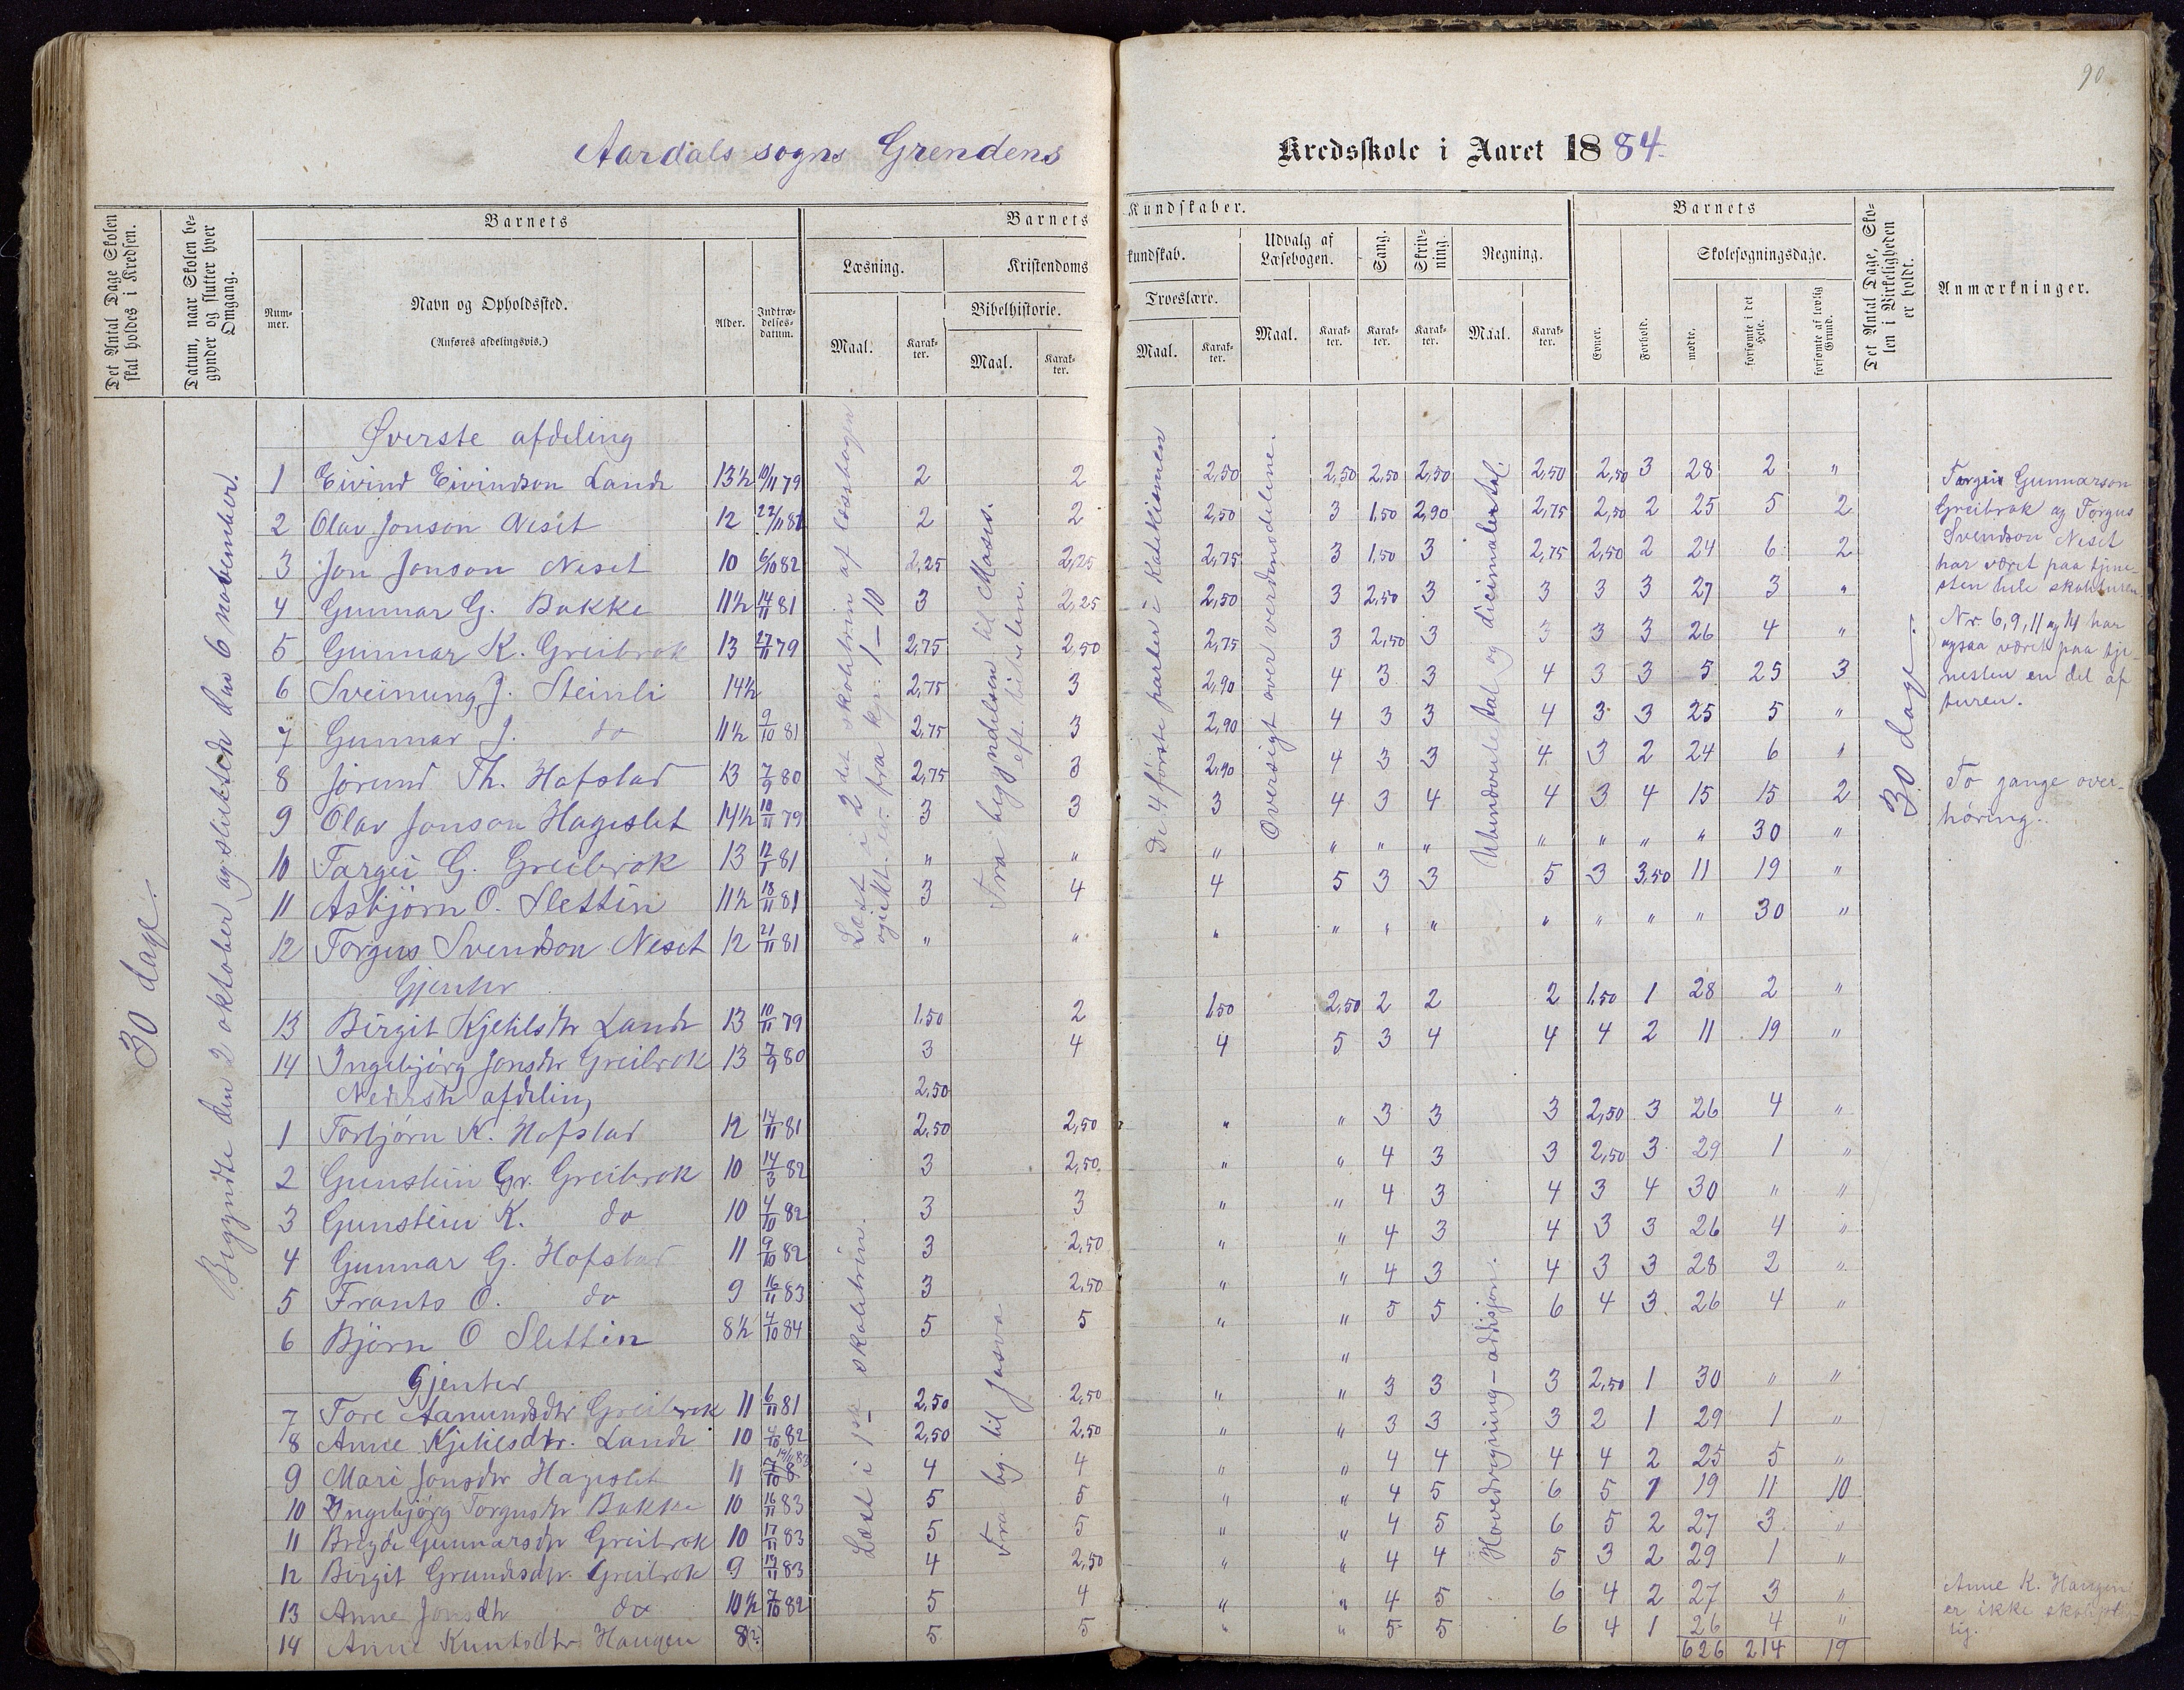 90
Aardals sogns Grendens Kredsskole i Aaret 1884.
Det Antal Dage Skolen skal holdes i Kredsen.
Datum, naar Skolen begynder og slutter hver Omgang.
Barnets
Nummer.
Navn og Opholdssted.
(Anføres afdelingsvis.)
Alder.
Indtrædelsesdatum.
Barnets Kundskaber.
Læsning.
Maal.
Karakter.
Kristendomskundskab.
Bibelhistorie.
Maal.
Karakter.
Troeslære.
Maal.
Karakter.
Udvalg af Læsebogen.
Maal.
Karakter.
Sang.
Karakter.
Skrivning.
Karakter.
Regning.
Maal.
Karakter.
Barnets
Evner.
Forhold.
Skolesøgningsdage.
mødte.
forsømte i det Hele.
forsømte af lovlig Grund.
Det Antal Dage, Skolen i Virkeligheden er holdt.
Anmærkninger.
30 dage.
Begyndte den 2 oktober og sluttede den 6 november.
Læst i 2det skoletrin af læsebogen
fra 1–10
Fra begyndelsen til Moses.
De 4 første parter i Katekismen
Oversigt over verdensdelene.
Ubenævnte tal og dicimaler
30 dage
Øverste afdeling
1 Eivind Eivindson Lande 13½ 10/11 79 2 2 2,50 2,50 2,50 2,50 2,50 2,50 3 28 2 "
2 Olav Jonson Neset 12 22/11 81 2 2 2,50 3 1,50 2,90 2,75 2,50 2 25 5 2
3 Jon Jonson Neset 10 6/10 82 2,25 2,25 2,75 3 1,50 3 2,75 2,50 2 24 6 2
4 Gunnar G. Bakke 11½ 14/11 81 3 2,25 2,50 3 2,50 3 3 3 3 27 3 "
5 Gunnar K. Greibrok 13 27/11 79 2,75 2,50 2,75 3 2,50 3 3 3 3 26 4 "
6 Sveinung J. Steinli 14½ 2,75 3 2,90 4 3 3 4 3 3 5 25 3
7 Gunnar J. do 11½ 9/10 81 2,75 3 2,90 4 3 3 4 3 3 25 5 "
8 Jørund Th. Hofstad 13 7/9 80 2,75 3 2,90 4 3 3 4 3 2 24 6 "
9 Olav Jonson Hageslet 14½ 10/11 79 3 3 3 4 3 4 4 3 4 15 15 2
10 Targei G. Greibrok 13 12/1 81 " " " " " " " " " " 30 "
11 Asbjørn O. Slettin 11½ 18/11 81 3 4 4 5 3 3 5 3 3,50 11 19 "
12 Torgus Svendson Neset 12 21/11 81 " " " " " " " " " " 30 "
Gjenter
13 Birgit Kjetilsdtr Lande 13 10/11 79 1,50 2 1,50 2,50 2 2 2 1,50 1 28 2 "
14 Ingebjørg Jonsdtr Greibrok 13 7/9 80 3 4 4 5 3 4 4 4 2 11 19 "
Nederste afdeling 2,50
Læst i 1ste skoletrin.
Fra beg. til Josva
Hovedregning – addisjon.
1 Torbjørn K. Hofstad 12 14/11 81 2,50 2,50 " " 3 3 3 2,50 3 26 4 "
2 Gunstein Gr. Greibrok 10 14/3 82 3 2,50 " " 4 3 3 2,50 3 29 1 "
3 Gunstein K. do 10 4/10 82 3 3 " " 4 3 4 3 4 30 " "
4 Gunnar G. Hofstad 11 9/10 82 3 2,50 " " 4 3 4 3 3 26 4 "
5 Frants O. do 9 16/11 83 3 2,50 " " 4 3 4 3 3 28 2 "
6 Bjørn O Slettin 8½ 4/10 84 5 5 " " 5 5 6 4 3 26 4 "
Gjenter "
7 Tore Aanundsdtr Greibrok 11 6/11 81 2,50 2,50 " " 3 3 3 2,50 1 30 " "
8 Anne Kjetilsdtr. Lande 10 4/10 82 2,50 2,50 " " 3 3 3 2 1 29 1 "
9 Mari Jonsdtr Hageslet 11 4 4 " " 4 4 4 4 2 25 5 "
10 Ingebjørg Torgusdtr Bakke 10 16/11 83 5 5 " " 4 5 6 5 1 19 11 10
11 Gunnarsdtr Greibrok 10 17/11 83 5 5 " " 4 5 6 5 2 27 3 "
12 Birgit Greibrok 9 19/11 83 4 2,50 " " 4 4 5 3 2 29 1 "
13 Anne Jonsdtr do 10½ 7/10 82 5 4 " " 4 5 6 4 2 27 3 "
14 Anne Knutsdtr Haugen 8(?) 5 5 " " 5 5 6 4 1 26 4 "
626 214 19
Targei Gunnarson
Greibrok og Torgus
Svendson Neset
har været paa tjene-
sten hele skoleturen.
Nr 6, 9, 11 og 14 har
ogsaa været paa tje-
nesten en del af
turen.
To gange over-
høring.
Anne K. Haugen
er ikke skoleplig-
tig.